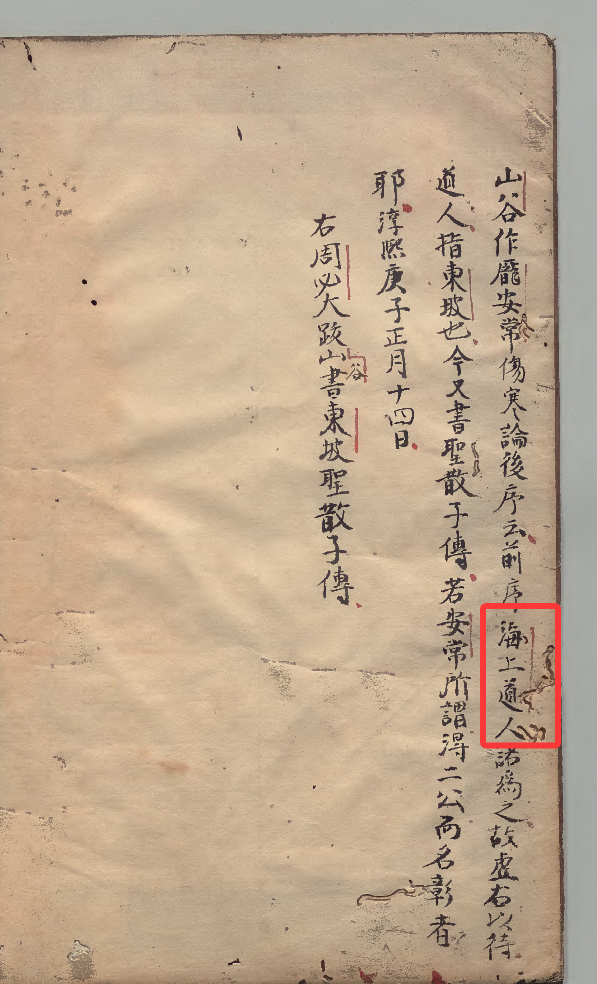 山谷作龐安常傷寒論後序云前序海上道人諾爲之故虛右以待
道人指東坡也今又書聖散子傳若安常所謂得二公而名彰者
耶淳熙庚子正月十四日
右周必大跋山谷書東坡聖散子傳